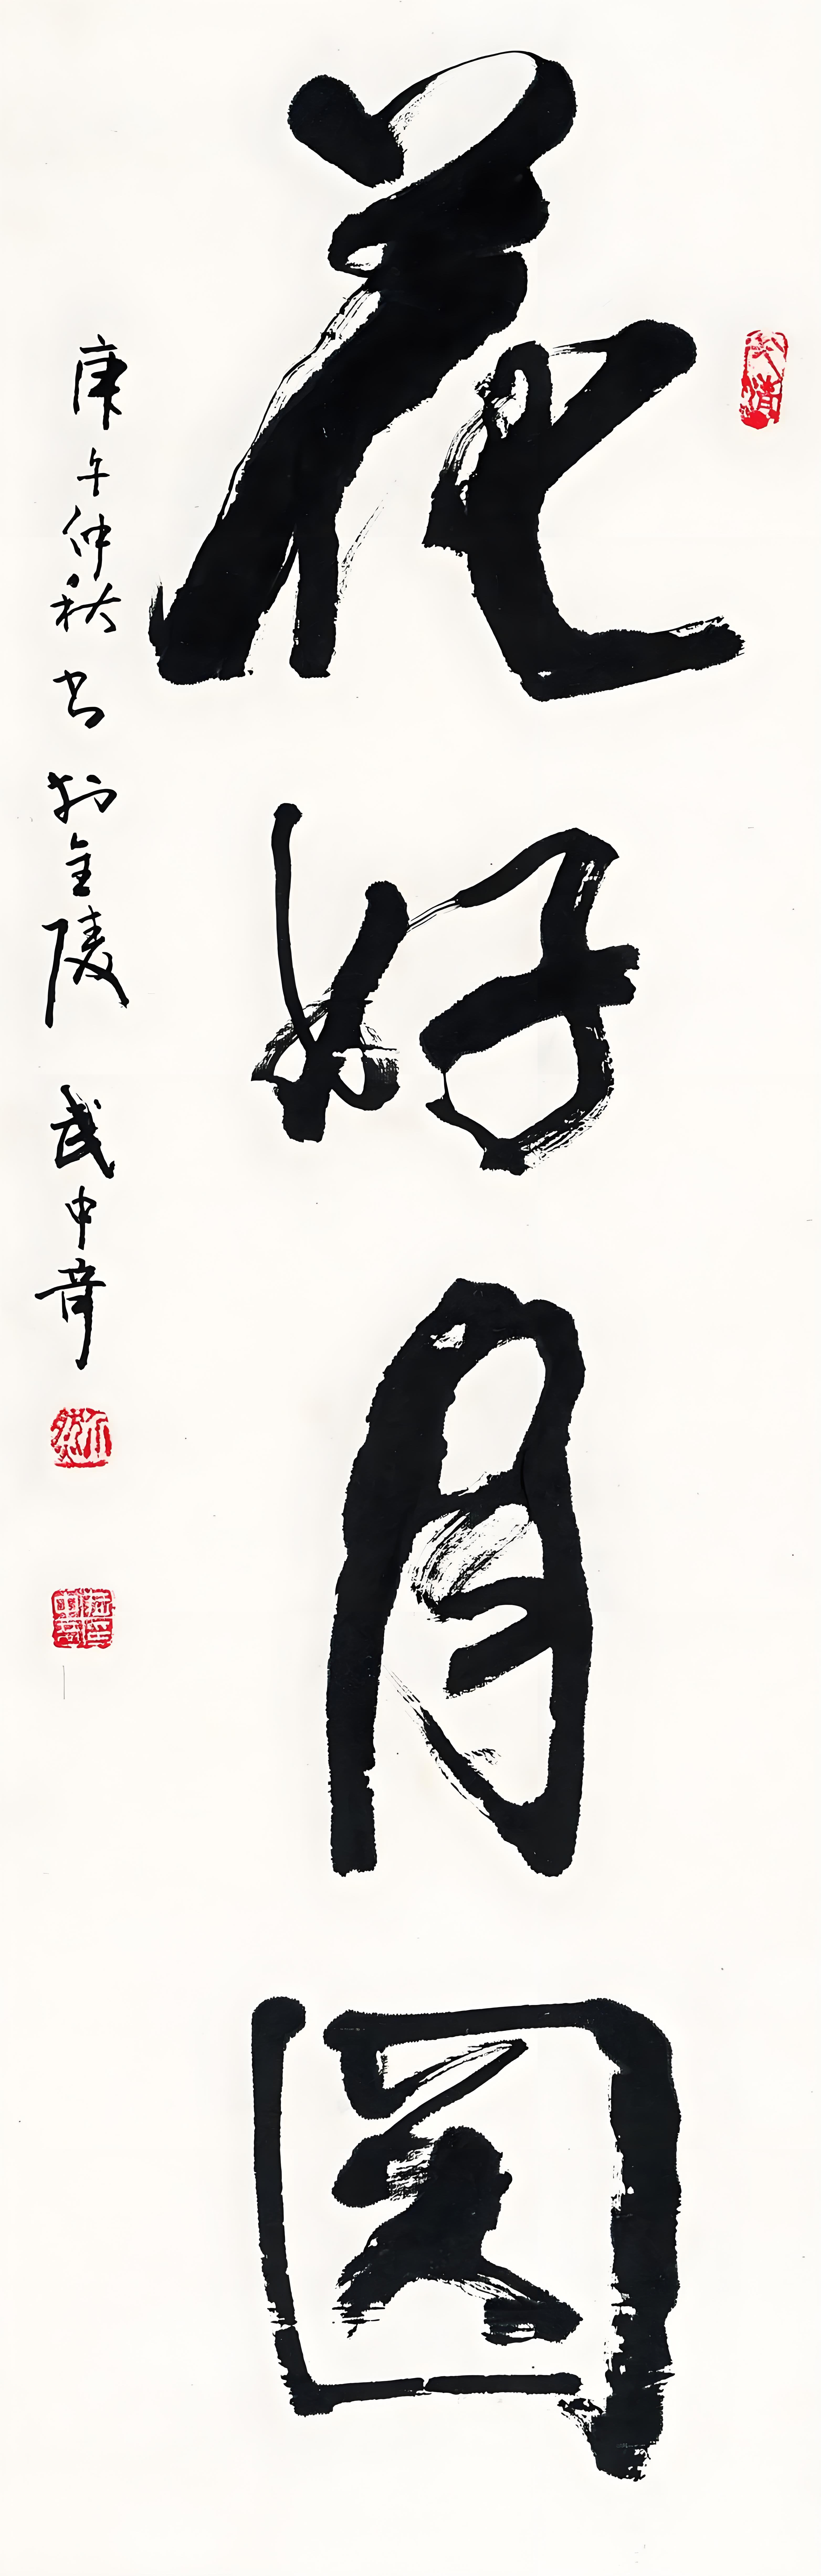 花好月圆
庚午仲秋书于金陵 武中奇